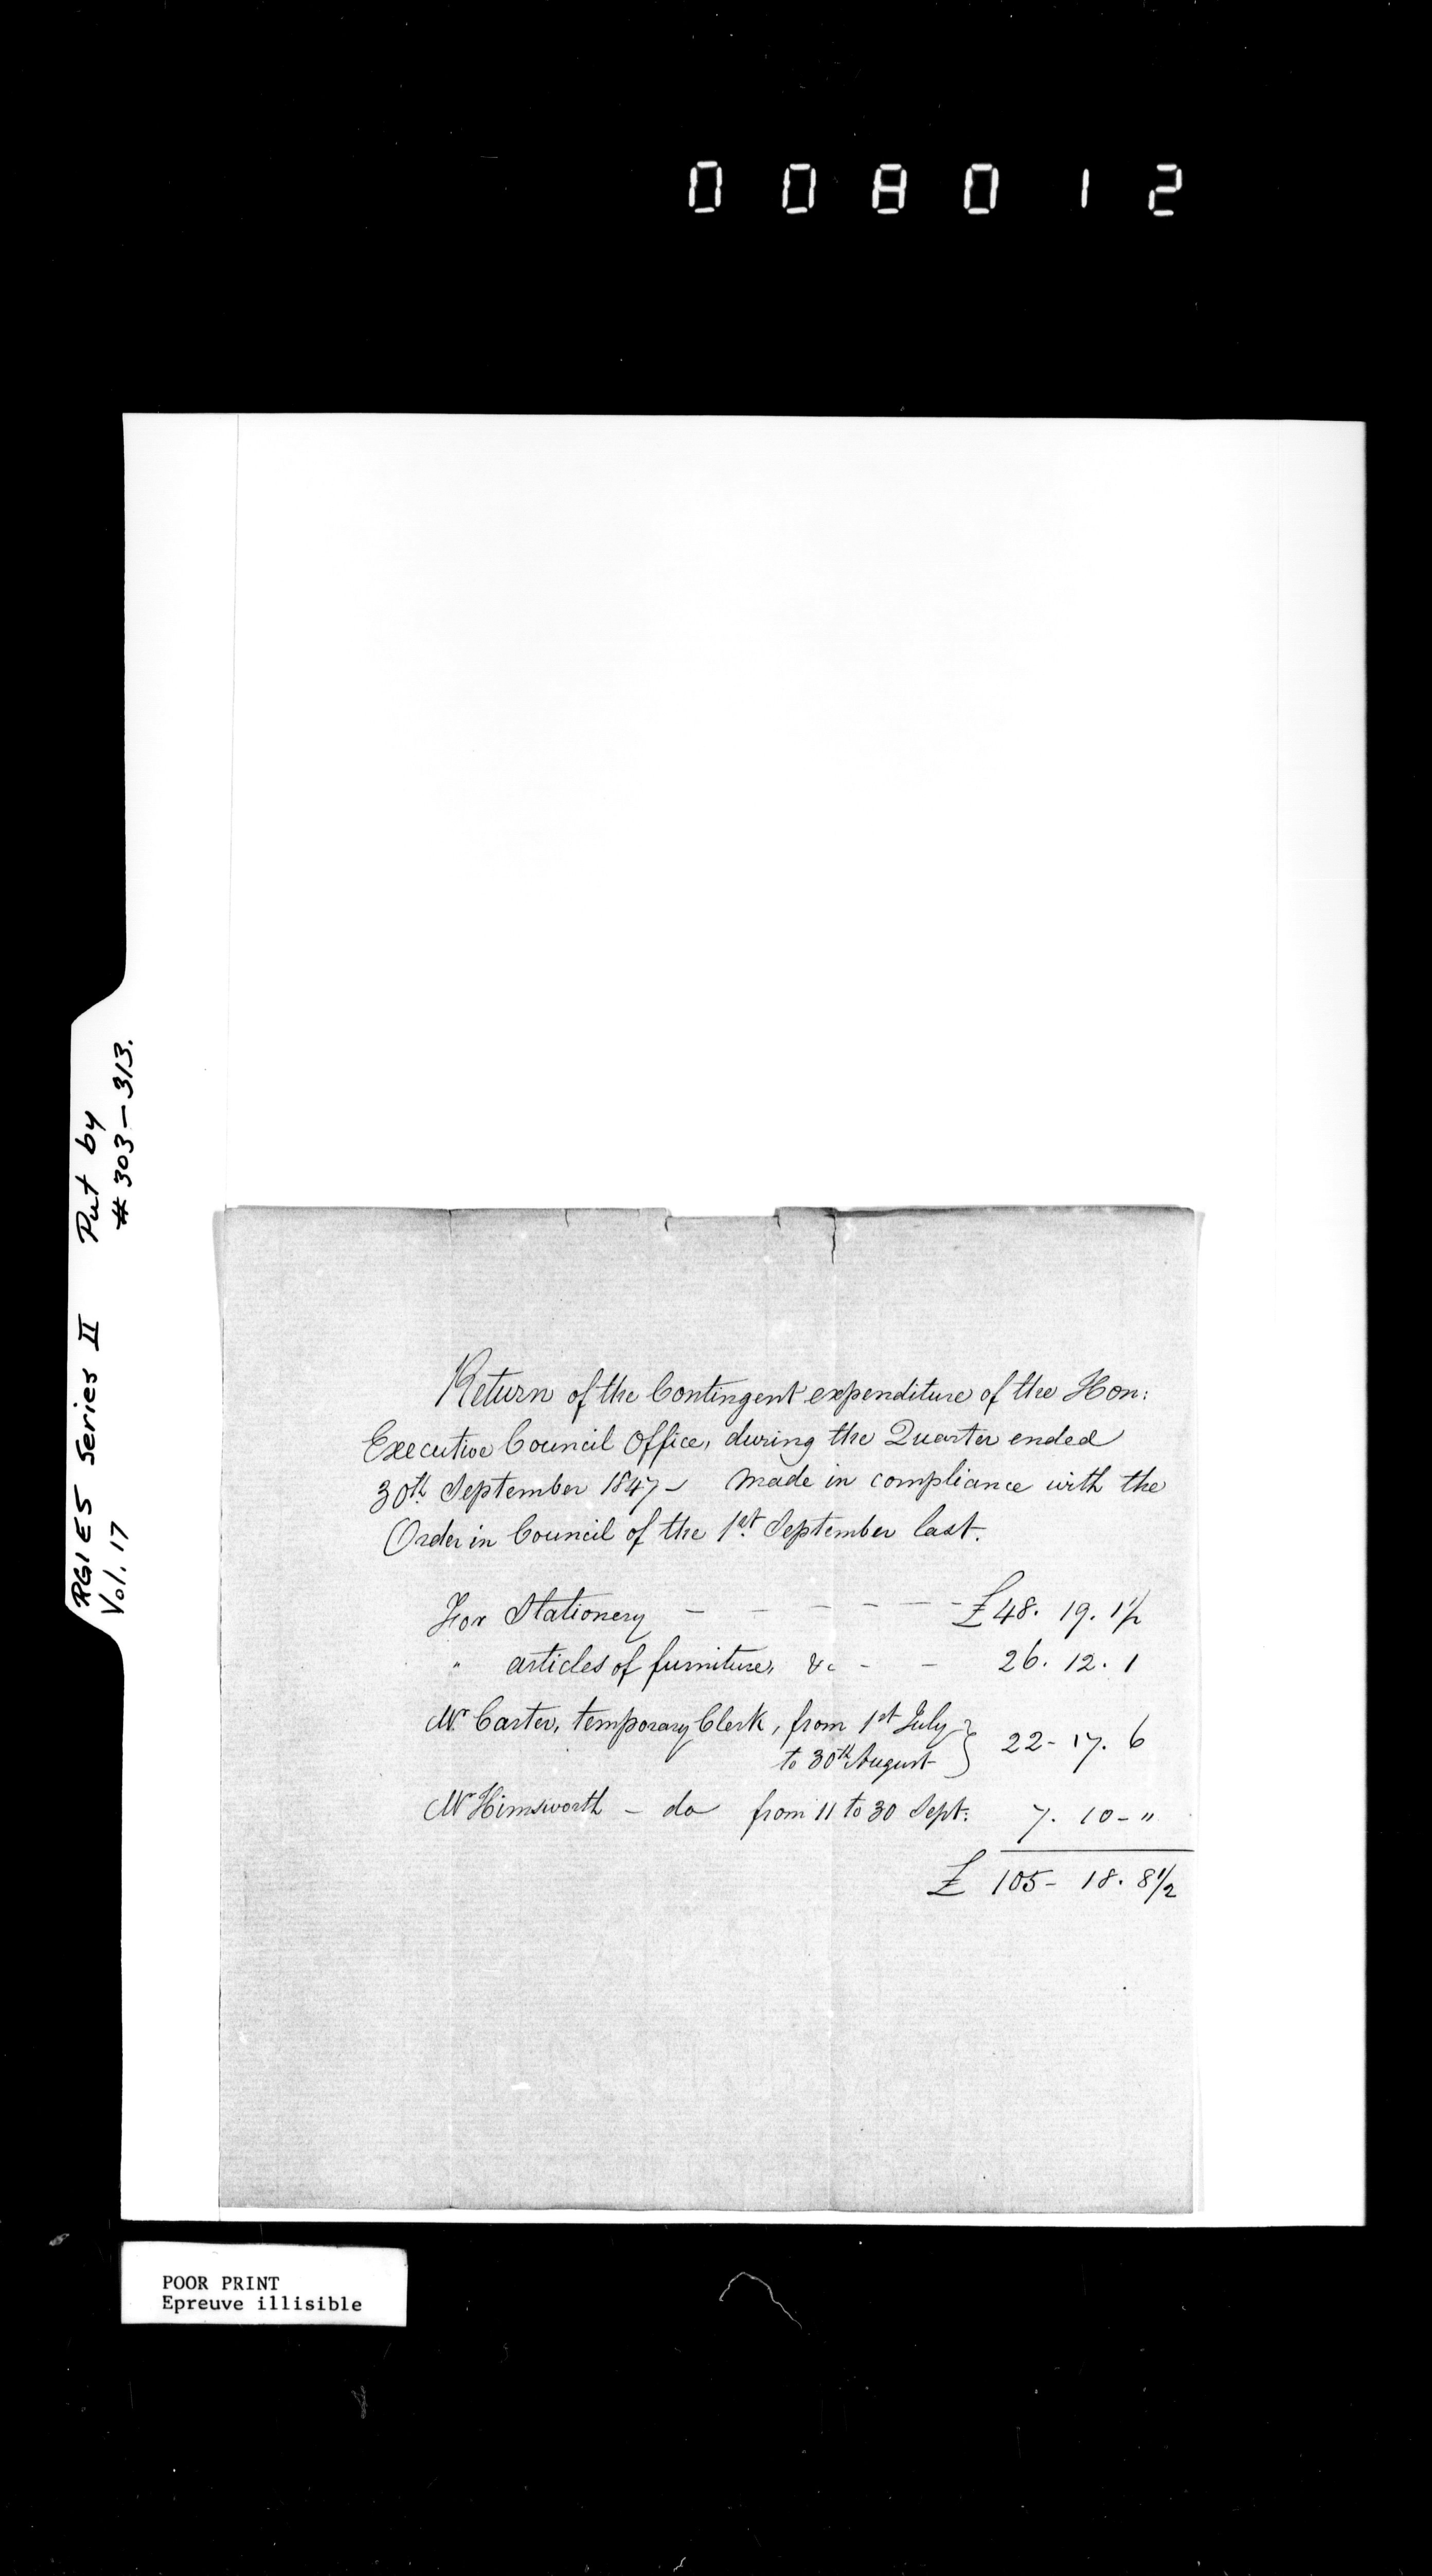 008012
RG1 E5 Series II Put by
Vol. 17 # 303-313.
Return of the Contingent expenditure of the Hon:
Executive Council Office, during the Quarter ended
30th September 1847 - made in compliance with the
Order in Council of the 1st September last.
For Stationery - - - - - - £48. 19. 1½
" articles of furniture, &c - - 26. 12. 1
Mr Carter, temporary Clerk, from 1st July
to 30th August } 22- 17. 6
Mr Himsworth - do from 11 to 30 Sept: 7. 10- "
£ 105- 18. 8½
POOR PRINT
Epreuve illisible